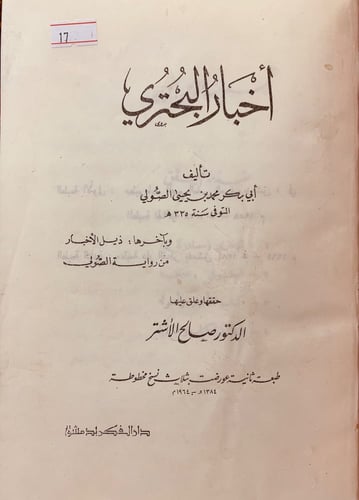 17
أخبار البُحتري
تأليف
أبي بكر محمد بن يحيى الصُّولي
المتوفى سَنة ٣٣٥ هـ
وبآخرها: ذيل الأخبار
من رواية الصُّولي
حققها وعلق عليها
الدكتور صالح الأشتر
طبعة ثانية عورضت بثلاث نسخ مخطوطة
١٣٨٤ هـ - ١٩٦٤ م
دار الفكر بدمشق